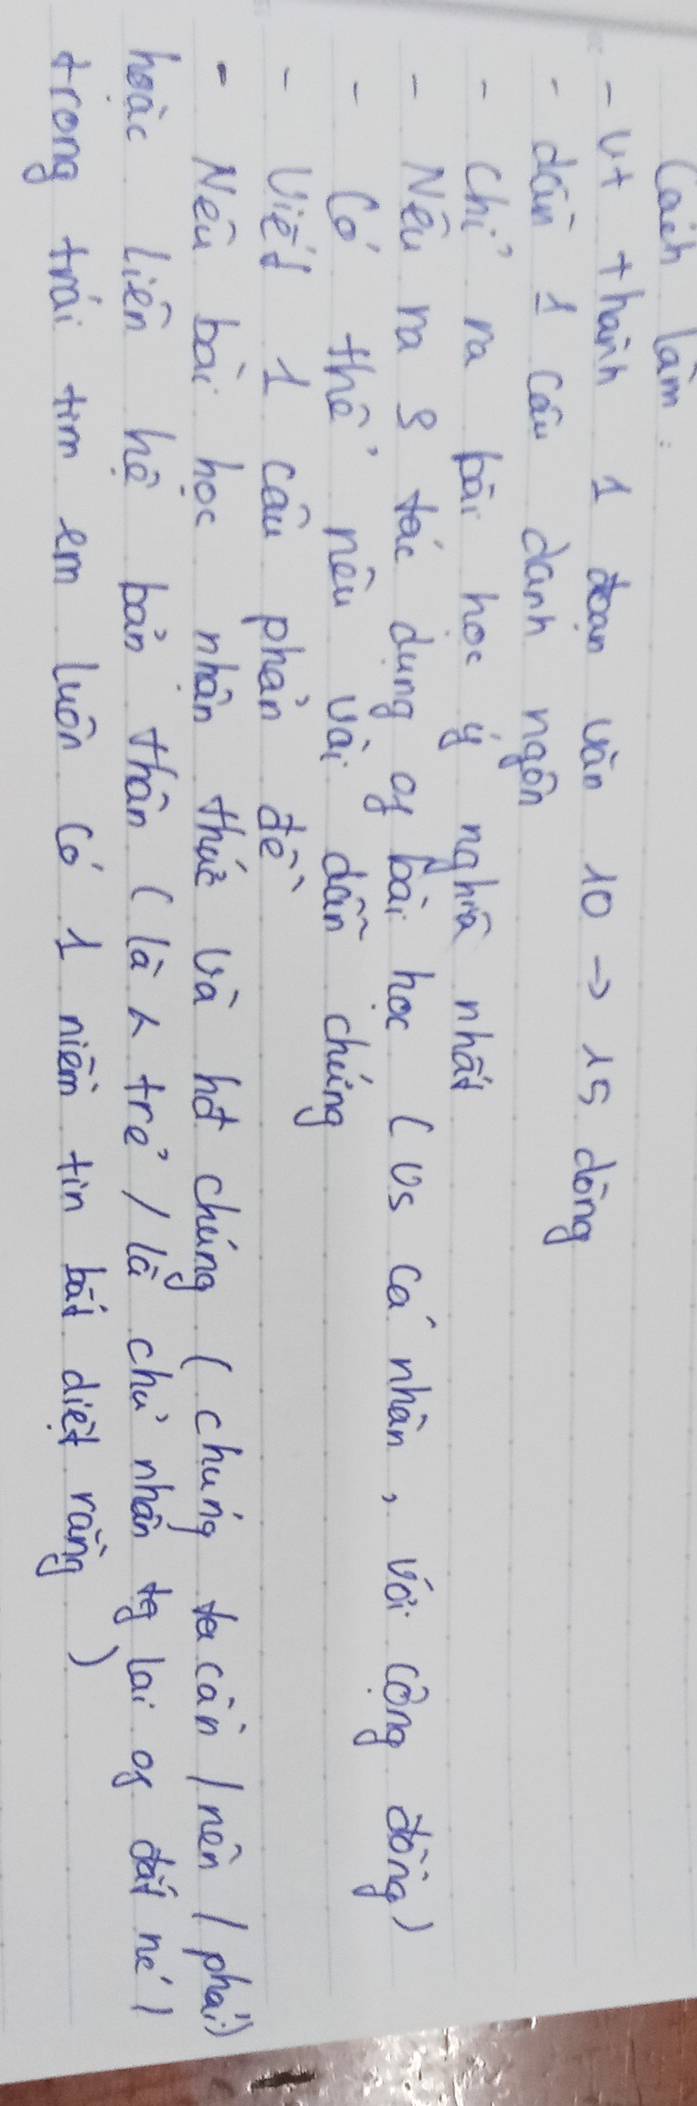 Cách làm:
- Vt thành 1 đoạn văn 10 → 15 dòng
- dẫn 1 câu danh ngôn
- Chỉ ra bài học ý nghĩa nhất
- Nêu ra 8 tác dụng of bài học (Vs cá nhân, với cộng đồng)
- Có thể nêu vài dẫn chứng
- Viết 1 câu phản đề
- Nêu bài học nhận thức và hđ chúng (chúng ta cần / nên / phải)
hoặc liên hệ bản thân (là 1 trẻ / là chủ nhân tg lai of đất nc /
trong trái tim em luôn có 1 niềm tin bất diệt rằng)